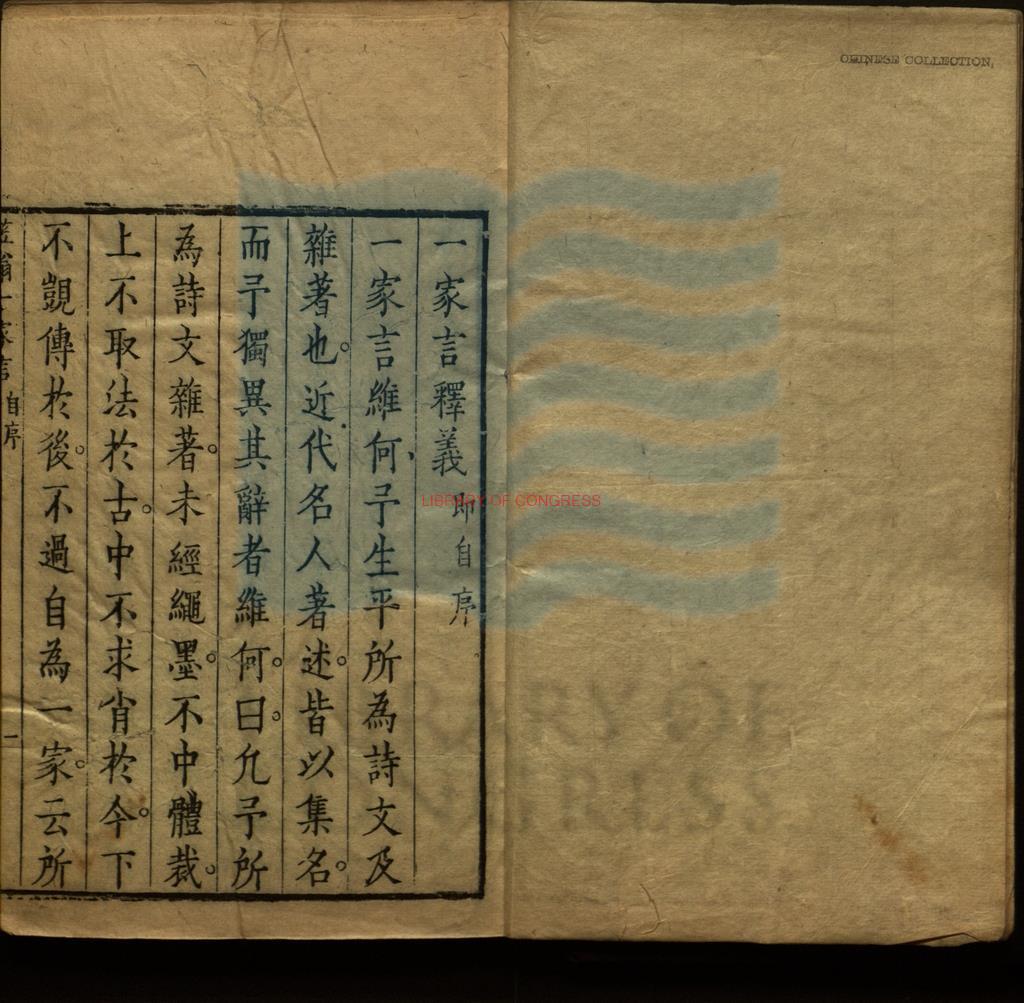 CHINESE COLLECTION
LIBRARY OF CONGRESS
一家言釋義 即自序
一家言維何予生平所為詩文及
雜著也。近代名人著述。皆以集名。
而予獨異其辭者維何。曰。凢予所
為詩文雜著。未經繩墨。不中體裁。
上不取法於古。中不求肖於今。下
不覬傳於後。不過自為一家。云所
笠翁一家言 自序 一